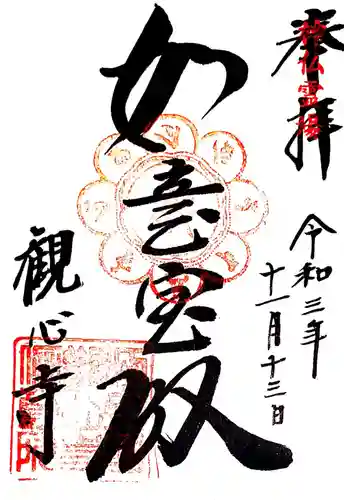 奉拝
仏霊場
令和三年
十一月十三日
如意宝殿
観心寺